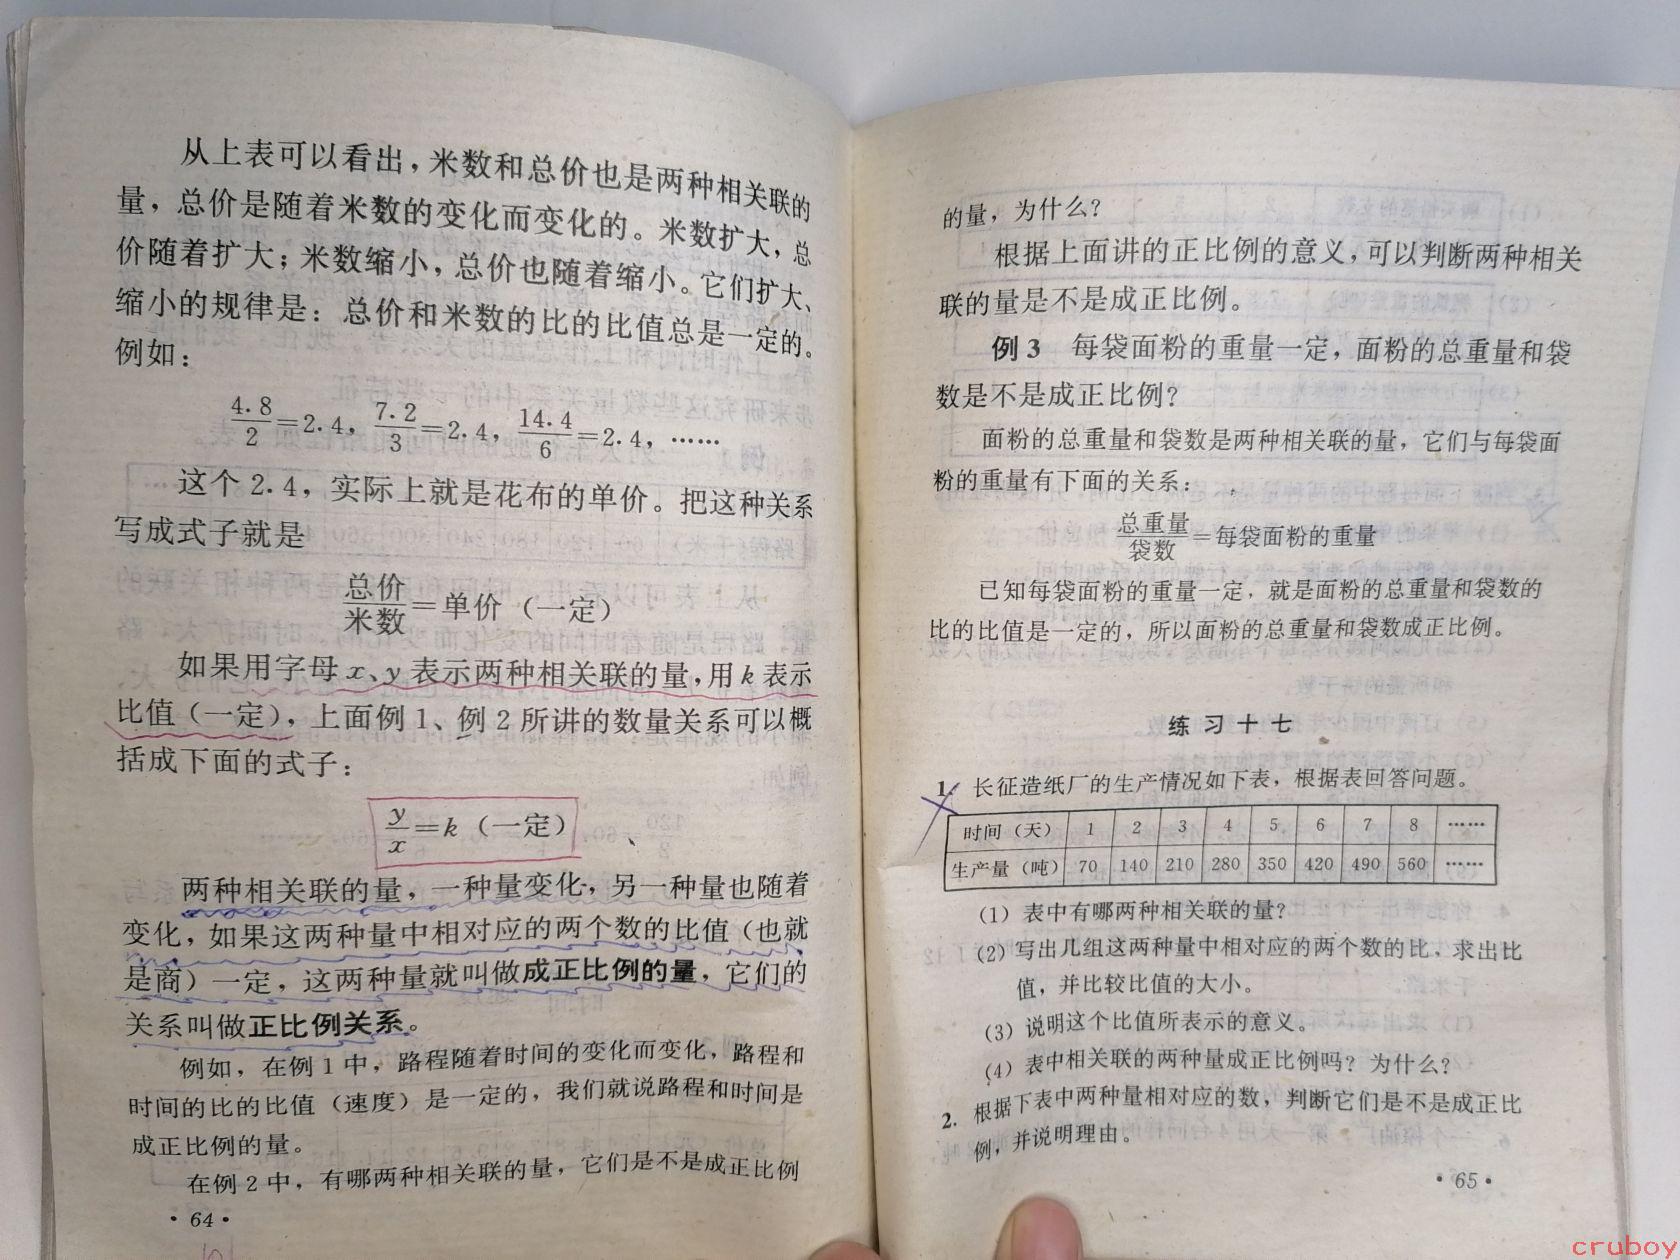 从上表可以看出，米数和总价也是两种相关联的
量，总价是随着米数的变化而变化的。米数扩大，总
价随着扩大；米数缩小，总价也随着缩小。它们扩大、
缩小的规律是：总价和米数的比的比值总是一定的。
例如：
4.8/2=2.4，7.2/3=2.4，14.4/6=2.4，……
这个2.4，实际上就是花布的单价。把这种关系
写成式子就是
总价/米数=单价（一定）
如果用字母x、y表示两种相关联的量，用k表示
比值（一定），上面例1、例2所讲的数量关系可以概
括成下面的式子：
y/x=k（一定）
两种相关联的量，一种量变化，另一种量也随着
变化，如果这两种量中相对应的两个数的比值（也就
是商）一定，这两种量就叫做成正比例的量，它们的
关系叫做正比例关系。
例如，在例1中，路程随着时间的变化而变化，路程和
时间的比的比值（速度）是一定的，我们就说路程和时间是
成正比例的量。
在例2中，有哪两种相关联的量，它们是不是成正比例
·64·
的量，为什么？
根据上面讲的正比例的意义，可以判断两种相关
联的量是不是成正比例。
例3 每袋面粉的重量一定，面粉的总重量和袋
数是不是成正比例？
面粉的总重量和袋数是两种相关联的量，它们与每袋面
粉的重量有下面的关系：
总重量/袋数=每袋面粉的重量
已知每袋面粉的重量一定，就是面粉的总重量和袋数的
比的比值是一定的，所以面粉的总重量和袋数成正比例。
练习十七
1. 长征造纸厂的生产情况如下表，根据表回答问题。
时间（天） 1 2 3 4 5 6 7 8 ……
生产量（吨） 70 140 210 280 350 420 490 560 ……
(1) 表中有哪两种相关联的量？
(2) 写出几组这两种量中相对应的两个数的比，求出比
值，并比较比值的大小。
(3) 说明这个比值所表示的意义。
(4) 表中相关联的两种量成正比例吗？为什么？
2. 根据下表中两种量相对应的数，判断它们是不是成正比
例，并说明理由。
·65·
cruboy